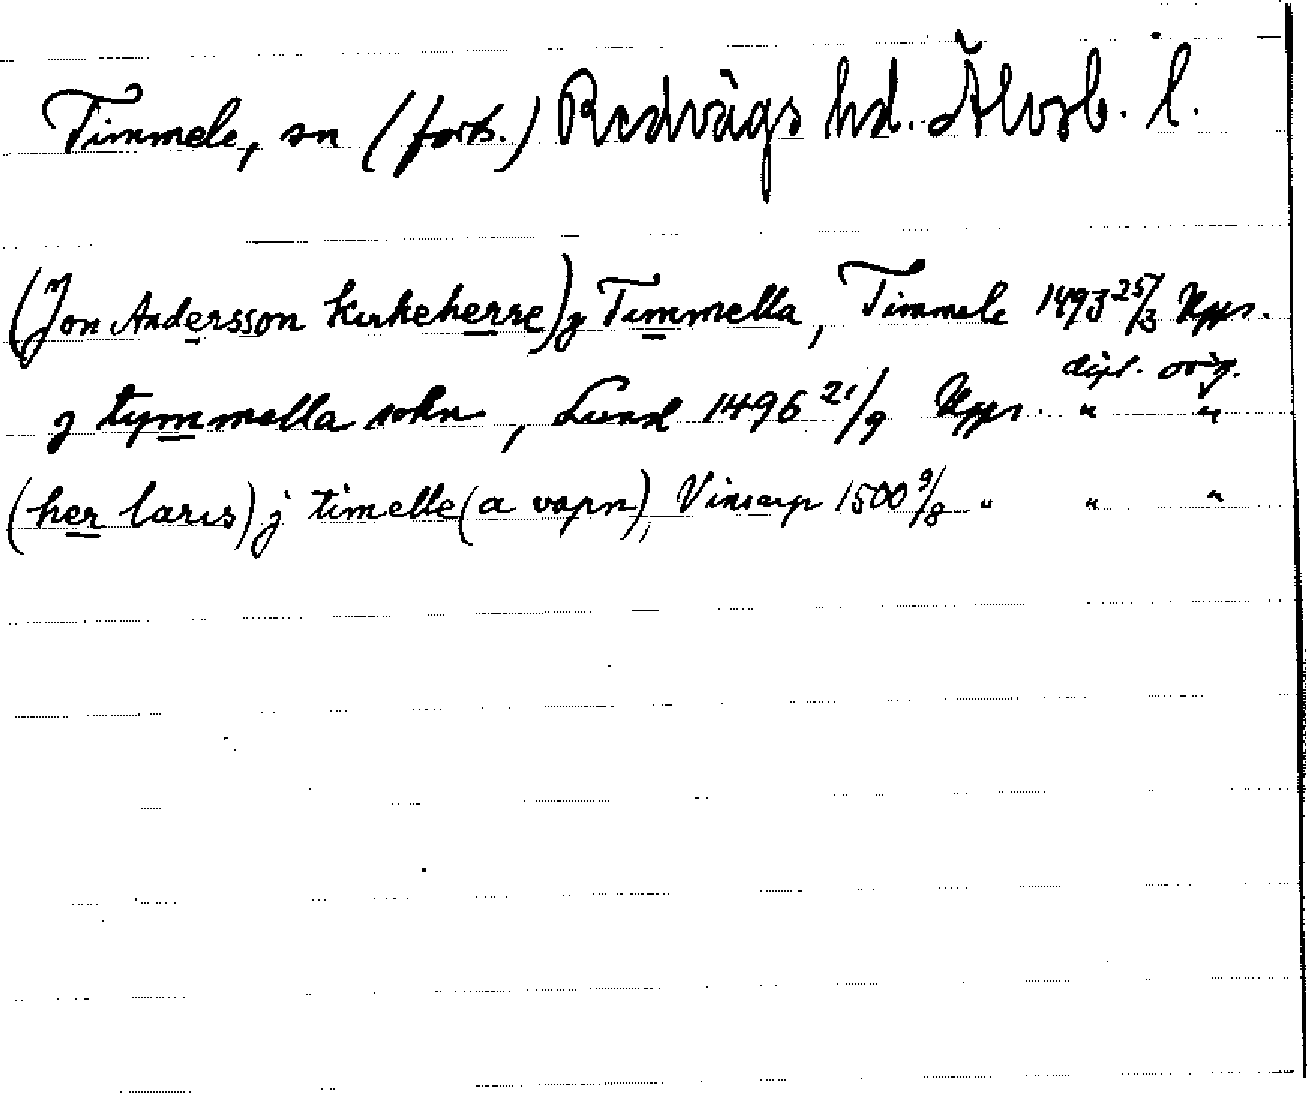 Timmele, sn (forts.) Redvägs hd. Älvsb. l.
(Jon Andersson kirkeherre) y Timmella, Timmele 1493 25/3 Upps.
dipl. orig.
y tymmella sokn, Lund 1496 21/9 Upps. " "
(her laris) j timelle (a vapn), Vinsarp 1500 9/8 " " "